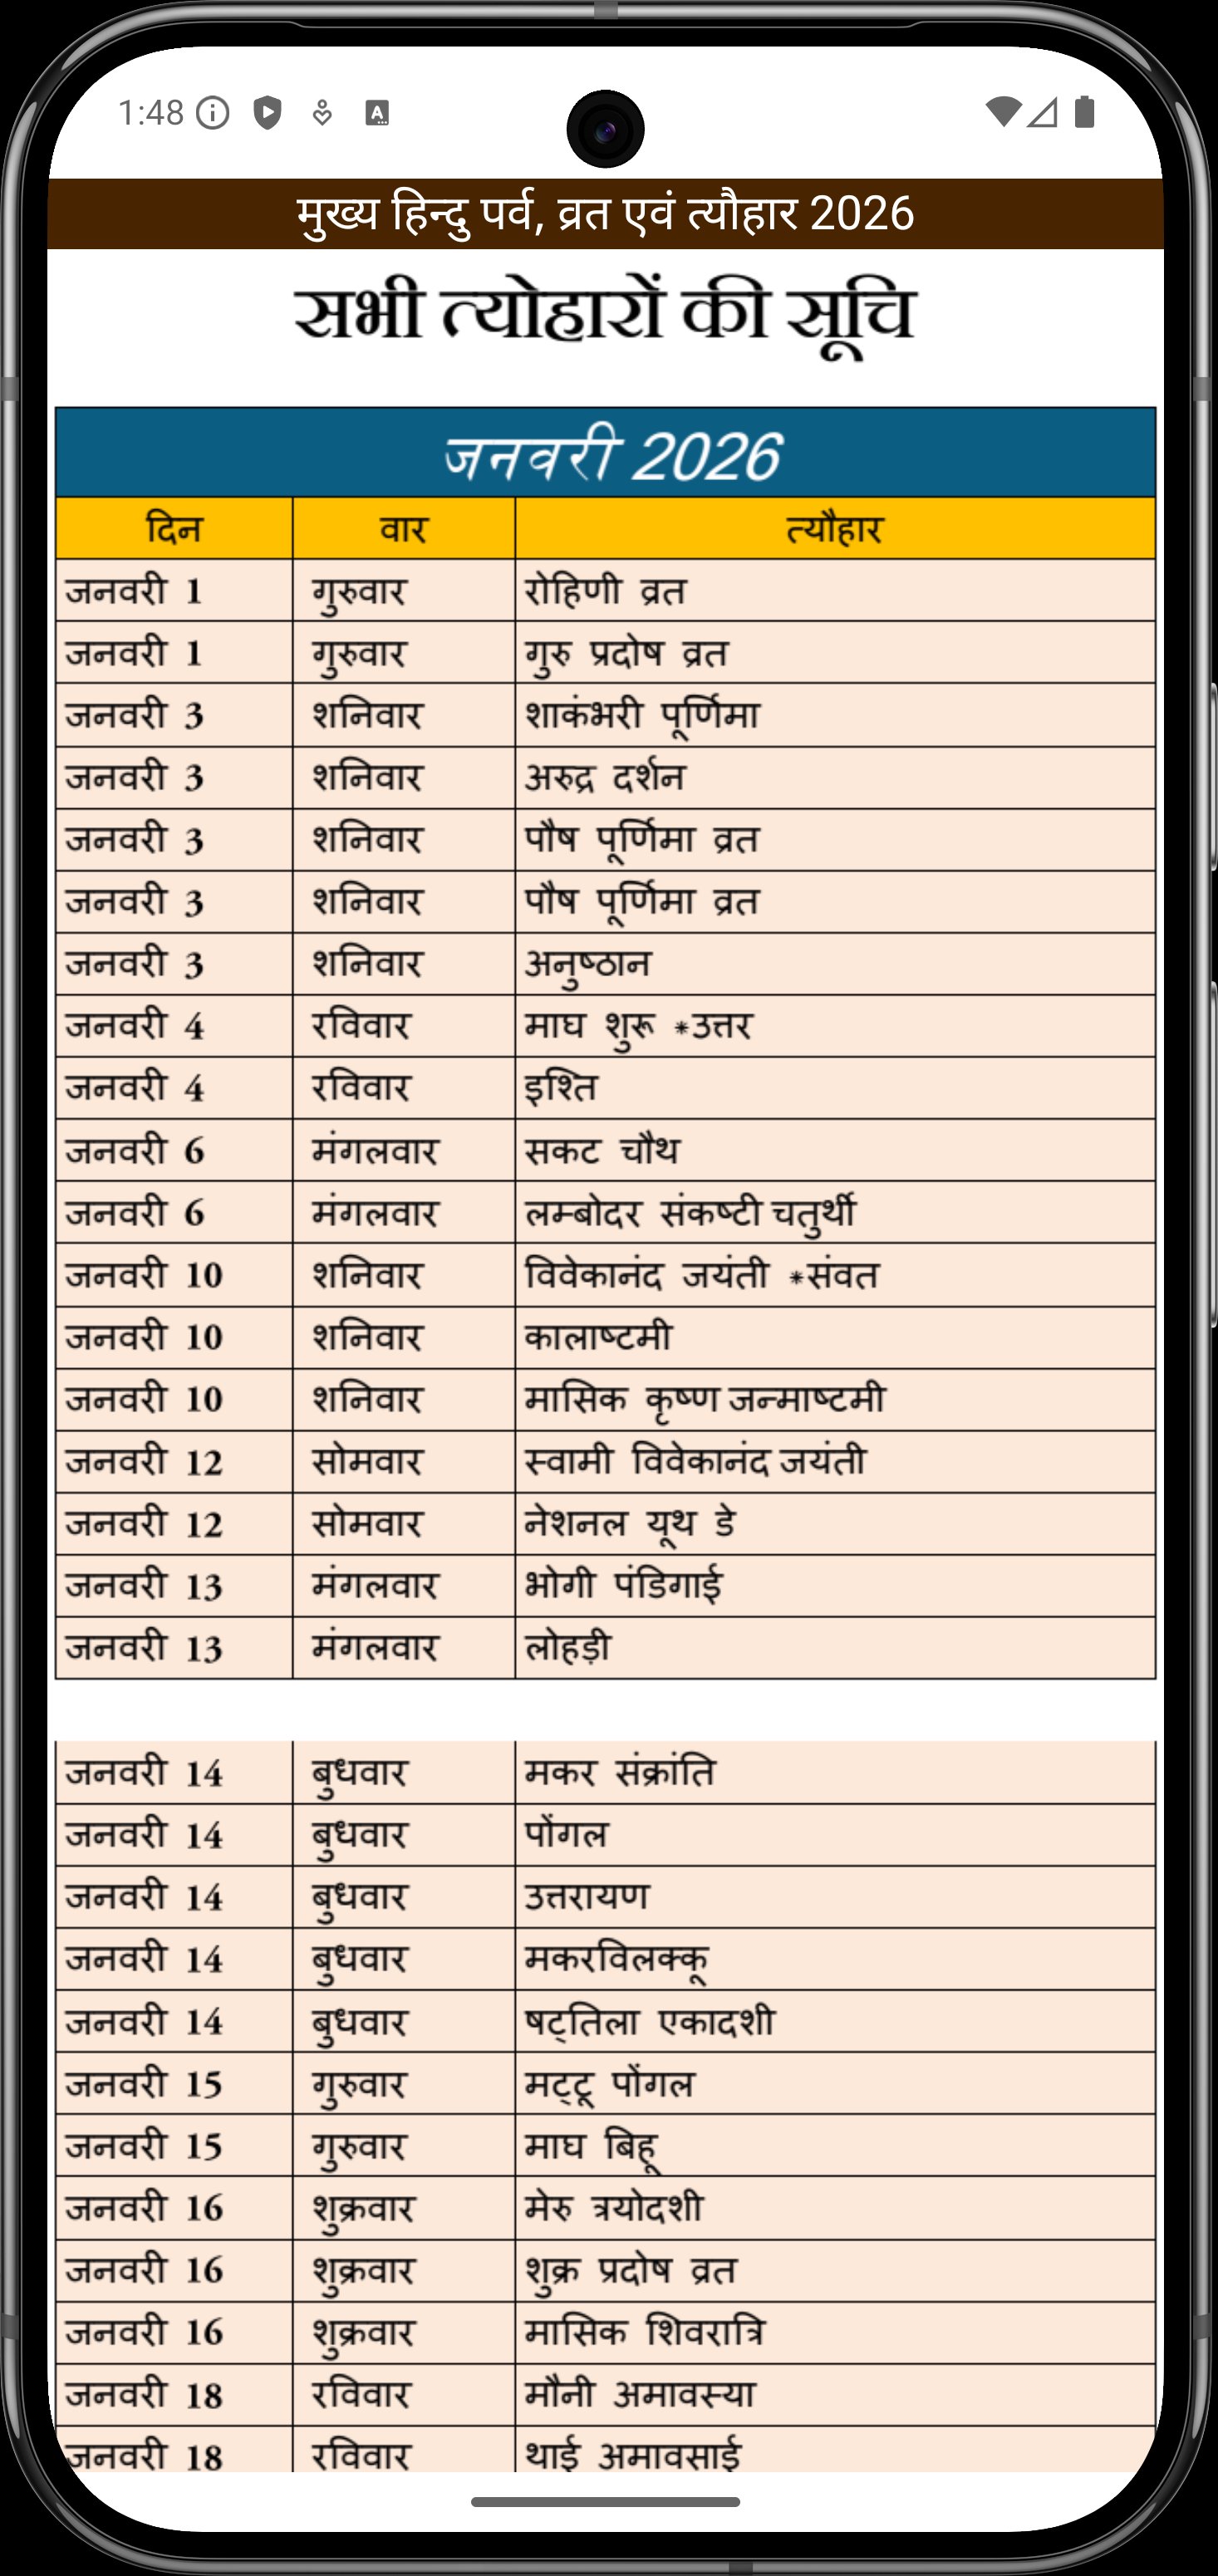 1:48
मुख्य हिन्दु पर्व, व्रत एवं त्यौहार 2026
सभी त्योहारों की सूचि
जनवरी 2026
दिन वार त्यौहार
जनवरी 1 गुरुवार रोहिणी व्रत
जनवरी 1 गुरुवार गुरु प्रदोष व्रत
जनवरी 3 शनिवार शाकंभरी पूर्णिमा
जनवरी 3 शनिवार अरुद्र दर्शन
जनवरी 3 शनिवार पौष पूर्णिमा व्रत
जनवरी 3 शनिवार पौष पूर्णिमा व्रत
जनवरी 3 शनिवार अनुष्ठान
जनवरी 4 रविवार माघ शुरू *उत्तर
जनवरी 4 रविवार इश्ति
जनवरी 6 मंगलवार सकट चौथ
जनवरी 6 मंगलवार लम्बोदर संकष्टी चतुर्थी
जनवरी 10 शनिवार विवेकानंद जयंती *संवत
जनवरी 10 शनिवार कालाष्टमी
जनवरी 10 शनिवार मासिक कृष्ण जन्माष्टमी
जनवरी 12 सोमवार स्वामी विवेकानंद जयंती
जनवरी 12 सोमवार नेशनल यूथ डे
जनवरी 13 मंगलवार भोगी पंडिगाई
जनवरी 13 मंगलवार लोहड़ी
जनवरी 14 बुधवार मकर संक्रांति
जनवरी 14 बुधवार पोंगल
जनवरी 14 बुधवार उत्तरायण
जनवरी 14 बुधवार मकरविलक्कू
जनवरी 14 बुधवार षट्तिला एकादशी
जनवरी 15 गुरुवार मट्टू पोंगल
जनवरी 15 गुरुवार माघ बिहू
जनवरी 16 शुक्रवार मेरु त्रयोदशी
जनवरी 16 शुक्रवार शुक्र प्रदोष व्रत
जनवरी 16 शुक्रवार मासिक शिवरात्रि
जनवरी 18 रविवार मौनी अमावस्या
जनवरी 18 रविवार थाई अमावसाई